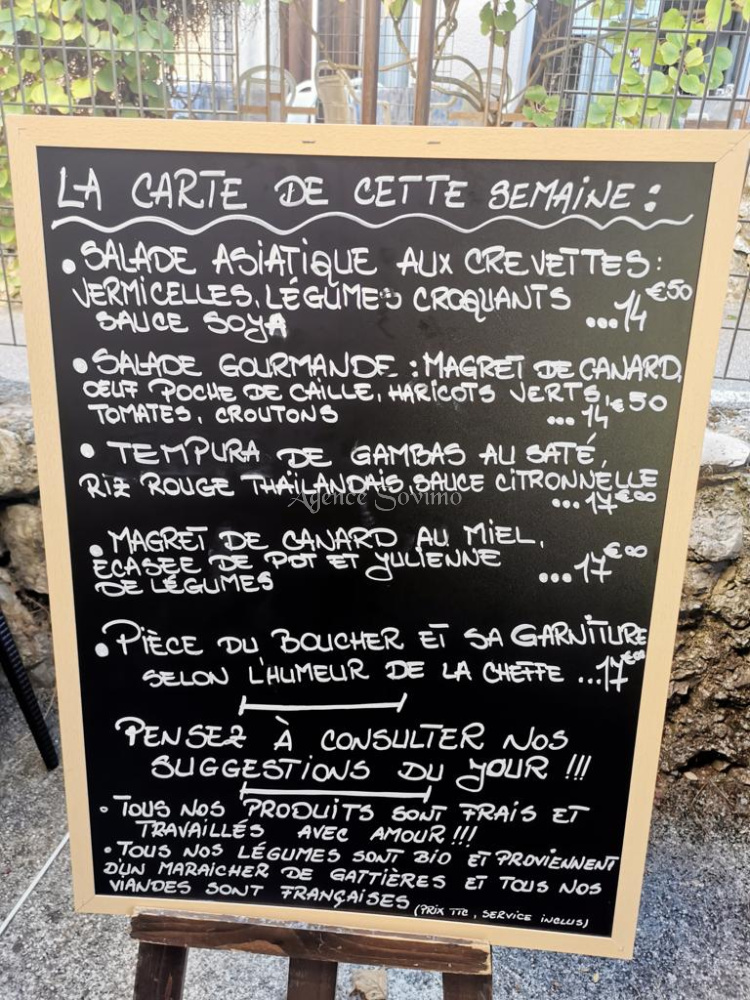 LA CARTE DE CETTE SEMAINE :
• SALADE ASIATIQUE AUX CREVETTES :
VERMICELLES, LÉGUMES CROQUANTS
SAUCE SOYA ...14€50
• SALADE GOURMANDE : MAGRET DE CANARD,
OEUF POCHE DE CAILLE, HARICOTS VERTS,
TOMATES, CROUTONS ... 14€50
• TEMPURA DE GAMBAS AU SATÉ,
RIZ ROUGE THAÏLANDAIS, SAUCE CITRONNELLE
...17€00
Agence Sovimo
• MAGRET DE CANARD AU MIEL,
ECASEE DE PDT ET JULIENNE
DE LÉGUMES ...17€00
• PIÈCE DU BOUCHER ET SA GARNITURE
SELON L'HUMEUR DE LA CHEFFE ...17€00
PENSEZ À CONSULTER NOS
SUGGESTIONS DU JOUR !!!
• TOUS NOS PRODUITS SONT FRAIS ET
TRAVAILLÉS AVEC AMOUR !!!
• TOUS NOS LÉGUMES SONT BIO ET PROVIENNENT
D'UN MARAICHER DE GATTIÈRES ET TOUS NOS
VIANDES SONT FRANÇAISES
(PRIX TTC, SERVICE INCLUS)